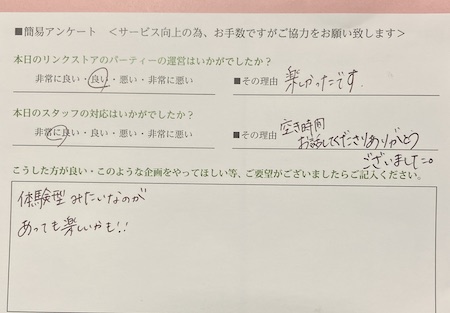 ■簡易アンケート ＜サービス向上の為、お手数ですがご協力をお願い致します＞
本日のリンクストアのパーティーの運営はいかがでしたか？
非常に良い・良い・悪い・非常に悪い ■その理由 楽しかったです.
本日のスタッフの対応はいかがでしたか？
非常に良い・良い・悪い・非常に悪い ■その理由 空き時間
お話してくださりありがとう
ございました。
こうした方が良い・このような企画をやってほしい等、ご要望がございましたらご記入ください。
体験型みたいなのが
あっても楽しいかも!!